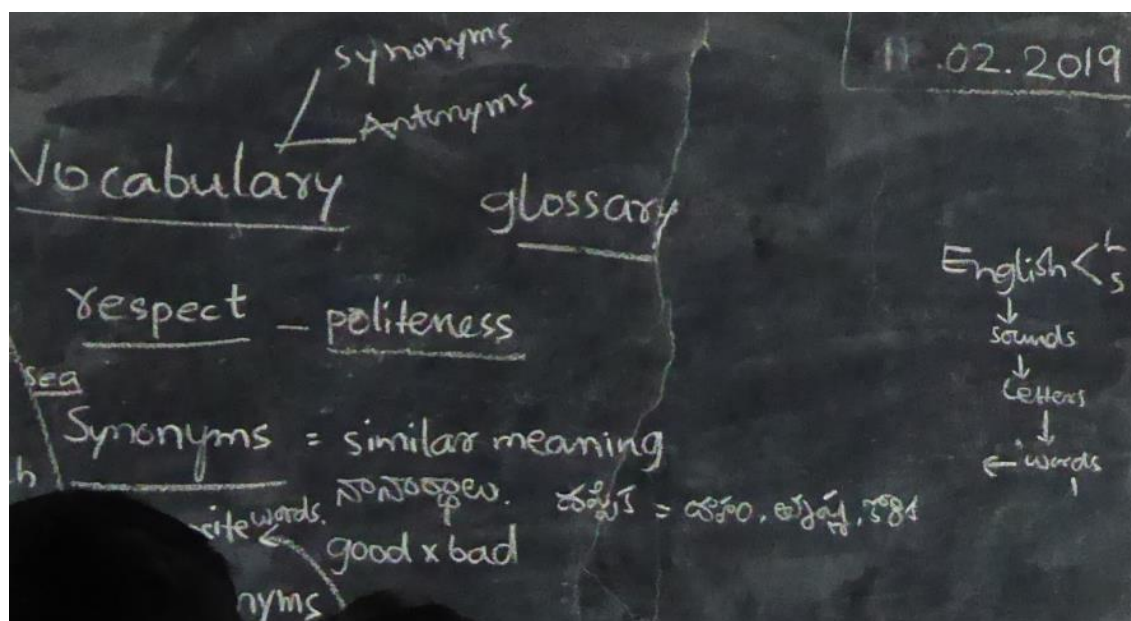 synonyms
Antonyms
Vocabulary
glossary
respect - politeness
sea
Synonyms = similar meaning
నానార్థాలు.
words.
good x bad
nyms
11.02.2019
English < L
S
↓
sounds
↓
Letters
↓
← words